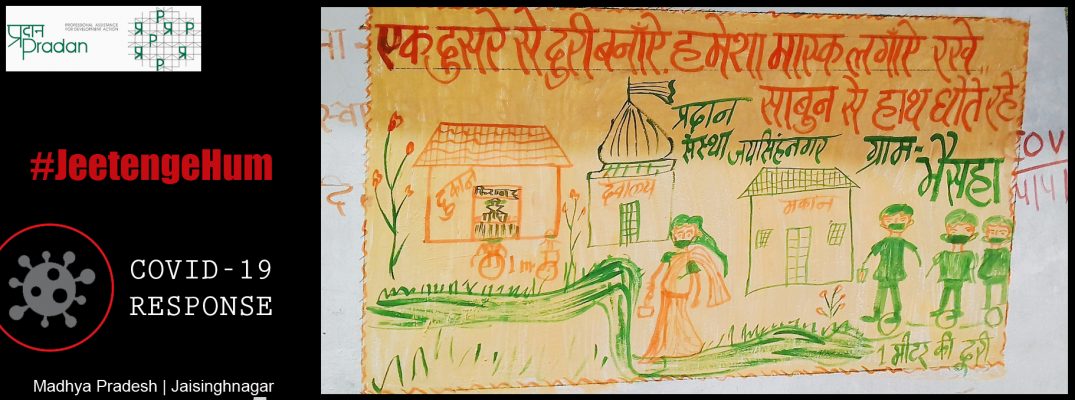 प्रदान
Pradan
PROFESSIONAL ASSISTANCE
FOR DEVELOPMENT ACTION
#JeetengeHum
COVID-19
RESPONSE
Madhya Pradesh | Jaisinghnagar
एक दुसरे से दुरी बनाऐं. हमेशा मास्क लगाऐं रखे..
साबुन से हाथ धोते रहे
प्रदान
संस्था जयसिंहनगर
ग्राम-
मैसहा
दुकान
देवालय
मकान
1 मीटर की दूरी